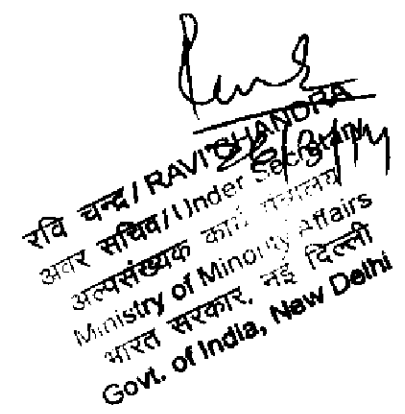 26/3/14
रवि चन्द्र / RAVI CHANDRA
अवर सचिव / Under Secretary
अल्पसंख्यक कार्य मंत्रालय
Ministry of Minority Affairs
भारत सरकार, नई दिल्ली
Govt. of India, New Delhi